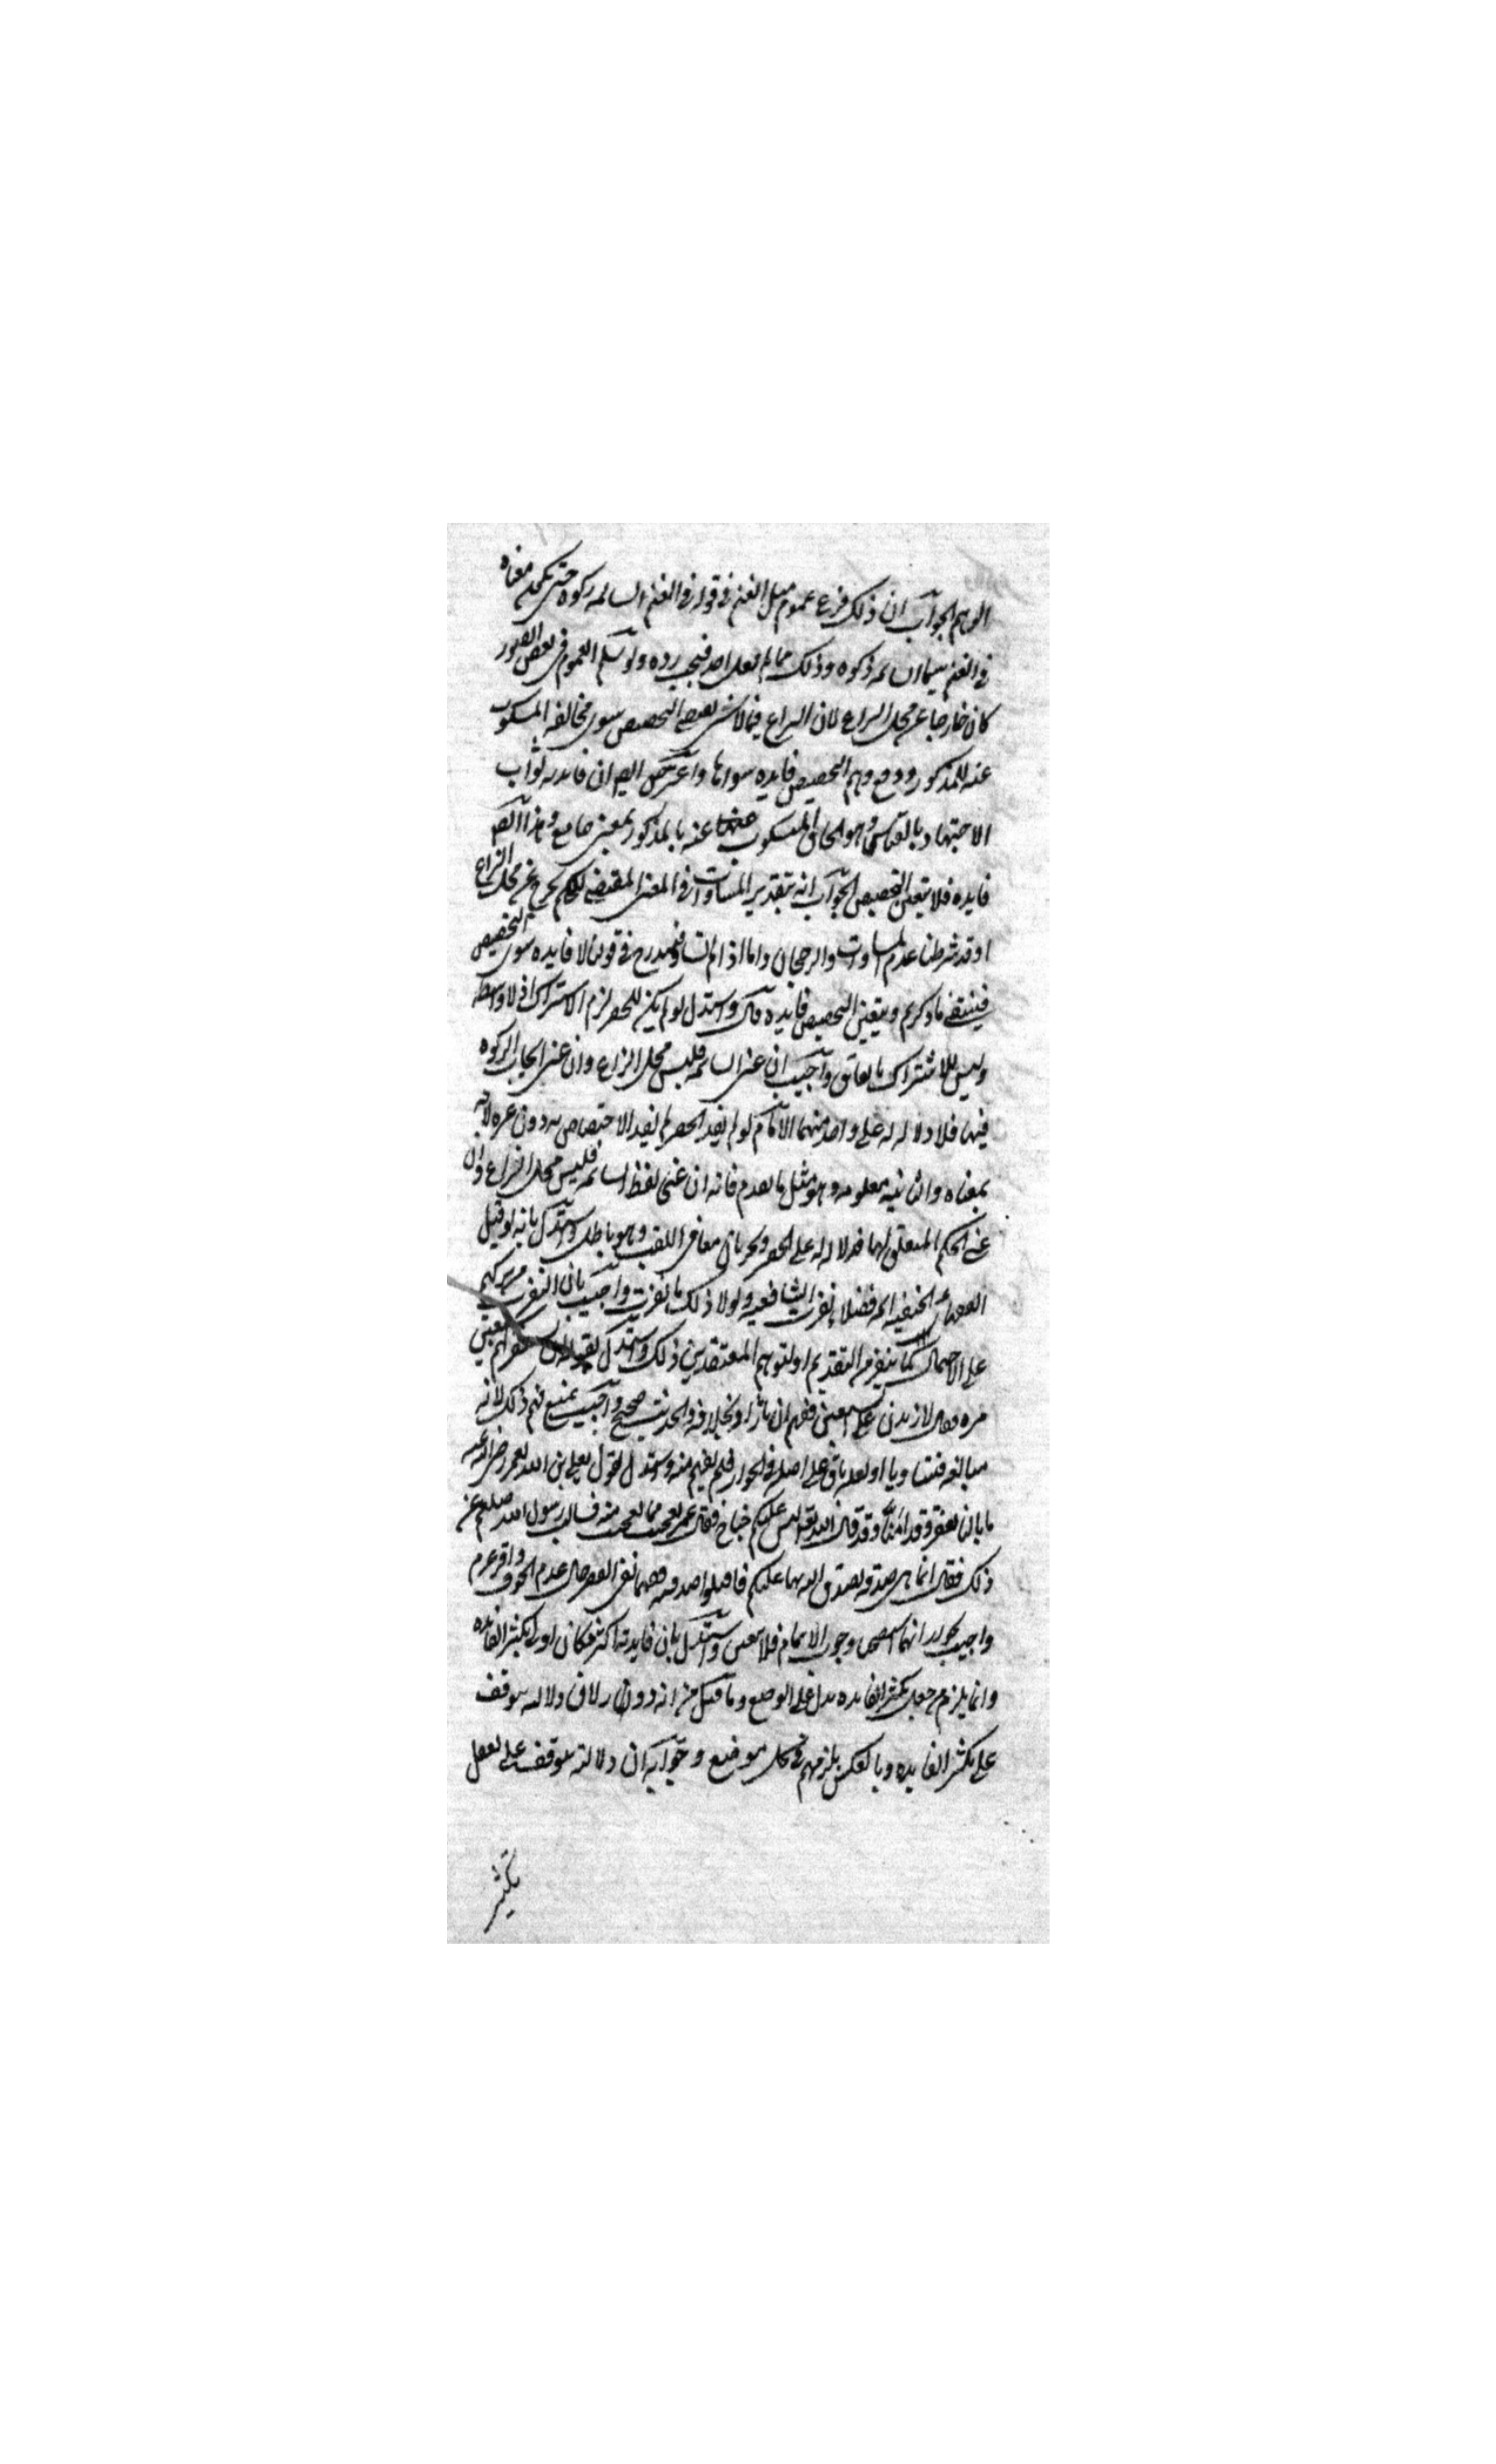 الوهم الجواب ان ذلك فرع عموم مثل الغنم في قوله في الغنم السائمه زكوه حتى يكون معناه
في الغنم سيما السائمه زكوه وذلك مما لم يقل احد فيجب رده ولو سلم العموم في بعض الصور
كان خارجا عن محل النزاع لان النزاع فيما لا شي يقتضي التخصيص سوى مخالفة المسكوت
عنه للمذكور ودفع وهم التخصيص فايده سواها واعترض ايضا ان فايدته ثواب
الاجتهاد بالقياس وهو الحاق المسكوت عنه بالمذكور بمعنى جامع وهذا ايضا
فايده فلا يتعين التخصيص الجواب انه بتقدير المساوات في المعنى المقتضي للحكم يخرج عن محل النزاع
اذ قد شرطنا عدم المساوات والرجحان واما اذا لم تساو فيندرج في قولنا لا فايده سوى التخصيص
فينتفي ما ذكرتم ويتعين التخصيص فايده قال واستدل لو لم يكن للحصر لزم الاشتراك اذ لا واسطه
وليس للاشتراك باتفاق واجيب ان عنى السائمه فليس محل النزاع وان عنى ايجاب الزكوه
فيها فلا دلاله له على واحد منهما الامام لو لم يفد الحصر لم يفد الاختصاص به دون غيره لانه
بمعناه والثانيه معلومه وهو مثل ما تقدم فانه ان عنى لفظ السائمه فليس محل النزاع وان
عنى الحكم المتعلق بها فلا دلاله له على الحصر ويجريان معا في اللقب وهو باطل واستدل بانه لو قيل
الفقهاء الحنفيه ائمه فضلا نفرت الشافعيه ولولا ذلك ما نفرت واجيب بان النفره من تركهم
على الاحتمال كما ينفر من التقديم او لتوهم المعتقدين ذلك واستدل بقوله ان تستغفر لهم سبعين
مره فقال لازيدن على السبعين ففهم ان ما زاد بخلافه والحديث صحيح واجيب بمنع فهم ذلك لانه
مبالغه فتساويا او لعله باق على اصله في الجواز فلم يفهم منه واستدل بقول يعلى بن اميه لعمر رضي الله عنه
ما بالنا نقصر وقد امنا وقد قال الله تعالى ليس عليكم جناح فقال عمر تعجبت مما تعجبت منه فسالت رسول الله صلعم عن
ذلك فقال انما هي صدقه تصدق الله بها عليكم فاقبلوا صدقته ففهما نفي القصر حال عدم الخوف واقر عم
واجيب بجواز انهما استصحبا وجوب الاتمام فلا يتعين واستدل بان فايدته اكثر فكان اولى تكثيرا للفايده
وانما يلزم من جعل تكثير الفايده يدل على الوضع وما قيل من انه دور لان دلالته يتوقف
على تكثير الفايده وبالعكس يلزمهم في كل موضع وجوابه ان دلالته يتوقف على تعقل
تكثير